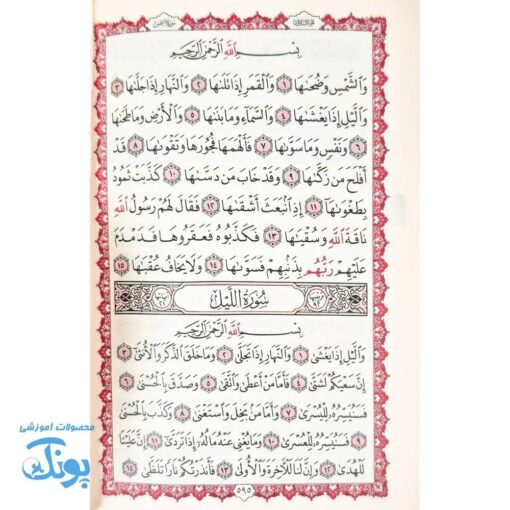 بِسْمِ اللَّهِ الرَّحْمَٰنِ الرَّحِيمِ
وَالشَّمْسِ وَضُحَىٰهَا ١ وَالْقَمَرِ إِذَا تَلَىٰهَا ٢ وَالنَّهَارِ إِذَا جَلَّىٰهَا ٣
وَالَّيْلِ إِذَا يَغْشَىٰهَا ٤ وَالسَّمَاءِ وَمَا بَنَىٰهَا ٥ وَالْأَرْضِ وَمَا طَحَىٰهَا
٦ وَنَفْسٍ وَمَا سَوَّىٰهَا ٧ فَأَلْهَمَهَا فُجُورَهَا وَتَقْوَىٰهَا ٨ قَدْ
أَفْلَحَ مَن زَكَّىٰهَا ٩ وَقَدْ خَابَ مَن دَسَّىٰهَا ١٠ كَذَّبَتْ ثَمُودُ
بِطَغْوَىٰهَا ١١ إِذِ انۢبَعَثَ أَشْقَىٰهَا ١٢ فَقَالَ لَهُمْ رَسُولُ اللَّهِ
نَاقَةَ اللَّهِ وَسُقْيَٰهَا ١٣ فَكَذَّبُوهُ فَعَقَرُوهَا فَدَمْدَمَ
عَلَيْهِمْ رَبُّهُم بِذَنۢبِهِمْ فَسَوَّىٰهَا ١٤ وَلَا يَخَافُ عُقْبَٰهَا ١٥
سُورَةُ اللَّيْلِ
بِسْمِ اللَّهِ الرَّحْمَٰنِ الرَّحِيمِ
وَالَّيْلِ إِذَا يَغْشَىٰ ١ وَالنَّهَارِ إِذَا تَجَلَّىٰ ٢ وَمَا خَلَقَ الذَّكَرَ وَالْأُنثَىٰ ٣
إِنَّ سَعْيَكُمْ لَشَتَّىٰ ٤ فَأَمَّا مَنْ أَعْطَىٰ وَاتَّقَىٰ ٥ وَصَدَّقَ بِالْحُسْنَىٰ ٦
فَسَنُيَسِّرُهُ لِلْيُسْرَىٰ ٧ وَأَمَّا مَن بَخِلَ وَاسْتَغْنَىٰ ٨ وَكَذَّبَ بِالْحُسْنَىٰ
٩ فَسَنُيَسِّرُهُ لِلْعُسْرَىٰ ١٠ وَمَا يُغْنِي عَنْهُ مَالُهُ إِذَا تَرَدَّىٰ ١١ إِنَّ عَلَيْنَا
لَلْهُدَىٰ ١٢ وَإِنَّ لَنَا لَلْآخِرَةَ وَالْأُولَىٰ ١٣ فَأَنذَرْتُكُمْ نَارًا تَلَظَّىٰ ١٤
٥٩٥
محصولات آموزشی
پونک